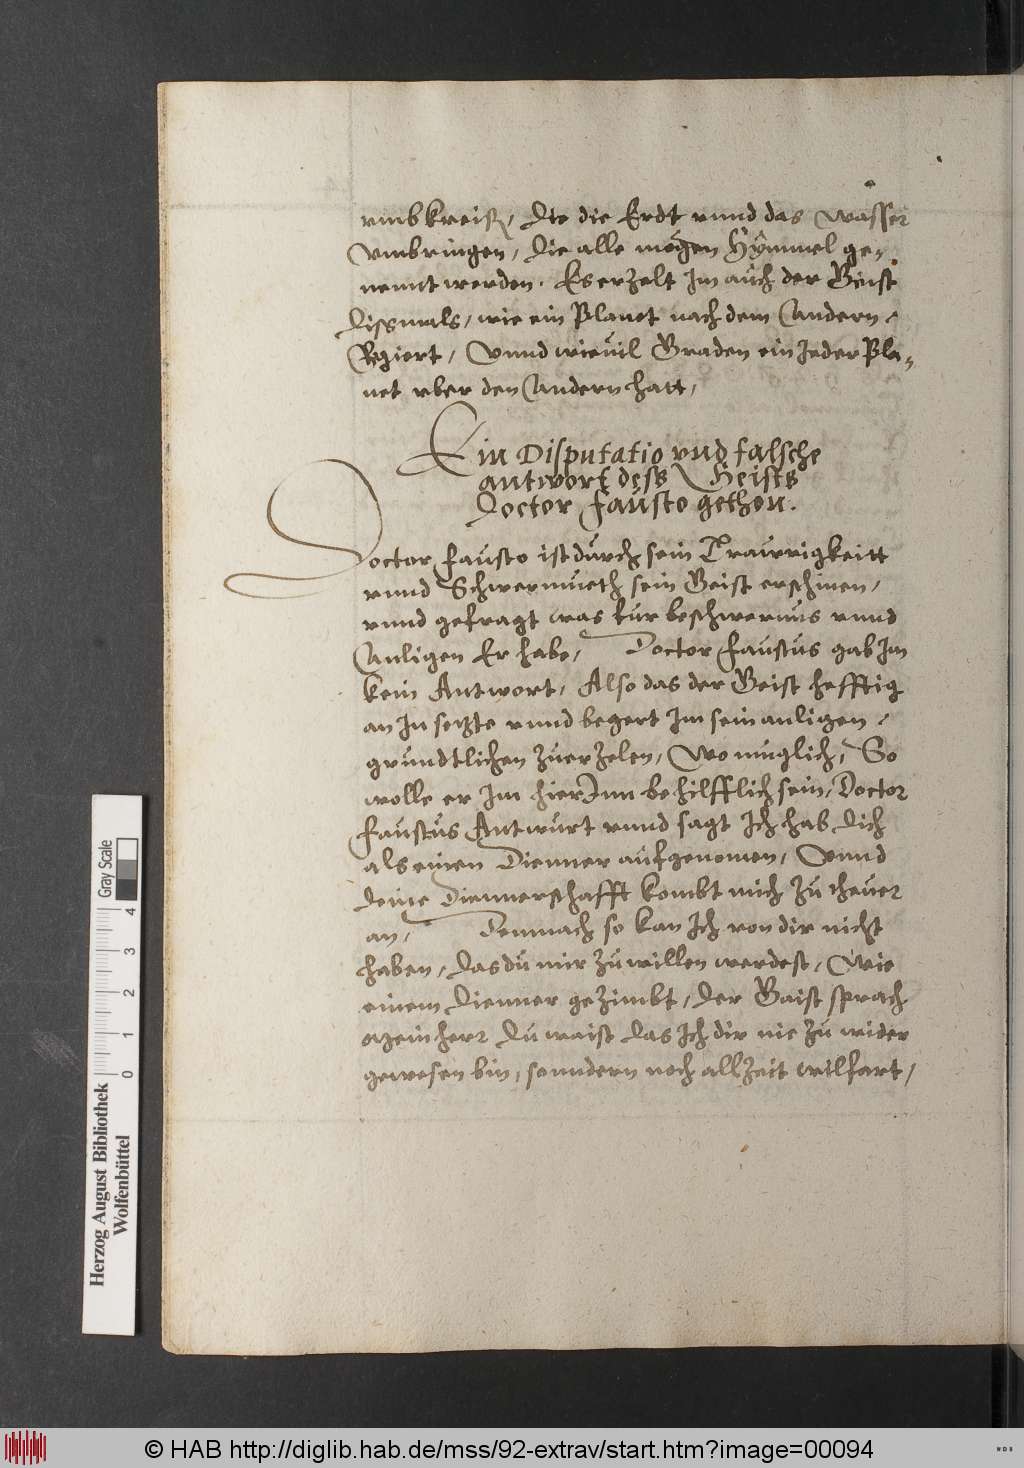 vmbkreiß, die die Erdt vnnd das wasser
vmbringen, die alle mögen Hÿmmel ge-
nennt werden. Es erzelt jm auch der Geist
dissmals, wie ein Planet nach dem Anndern
Regiert, Vnnd wieuil Graden ein jeder Pla-
net vber den Anndern hatt,
Ein Disputatio vnd falsche
antwort dess Geists
doctor fausto gethon.
Doctor fausto ist durch sein Traurrigkeitt
vnnd Schwermueth sein Geist erschinen,
vnnd gefragt was fur beschwernus vnnd
Anligen Er habe, Doctor faustus gab jm
kein Antwort, Also das der Geist hefftig
an jn setzte vnnd begert jm sein anligen
grundtlichen zuerzelen, Wo muglich, So
wolle er jm hierJnn behilfflich sein, Doctor
faustus Antwurt vnnd sagt Ich hab dich
als einen Dienner aufgenomen, Vnnd
deine Diennerschafft kombt mich zu theuer
an, Demnach so kan Ich von dir nicht
haben, das du mir zu willen werdest, Wie
einem dienner gezimbt, der Gaist sprach
Mein herr du waist das Ich dir nie zu wider
gewesen bin, sonndern noch allzeit wilfart,
Herzog August Bibliothek
Wolfenbüttel
Gray Scale
0 1 2 3 4
© HAB http://diglib.hab.de/mss/92-extrav/start.htm?image=00094
WDB